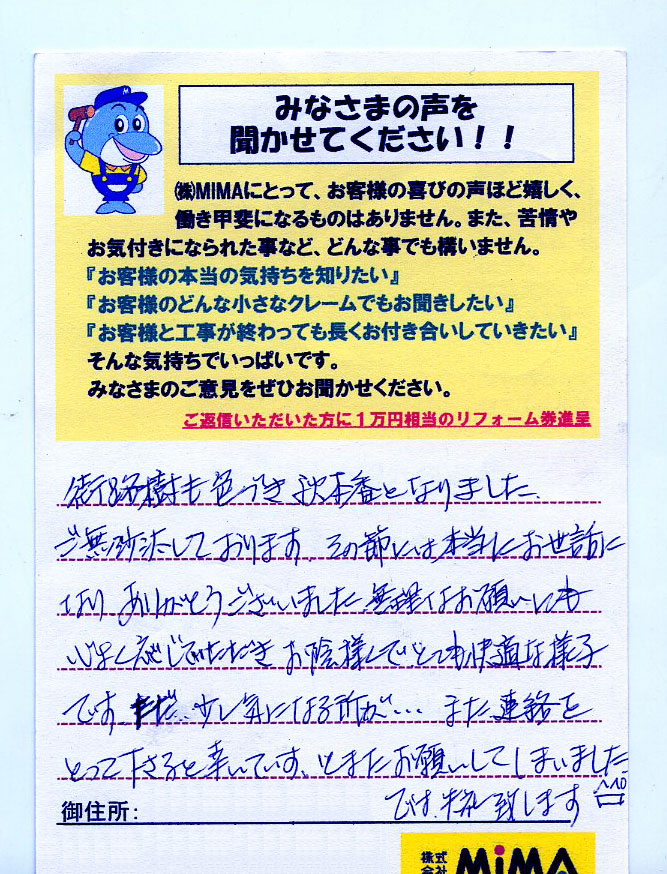 みなさまの声を
聞かせてください！！
㈱MIMAにとって、お客様の喜びの声ほど嬉しく、
働き甲斐になるものはありません。また、苦情や
お気付きになられた事など、どんな事でも構いません。
『お客様の本当の気持ちを知りたい』
『お客様のどんな小さなクレームでもお聞きしたい』
『お客様と工事が終わっても長くお付き合いしていきたい』
そんな気持ちでいっぱいです。
みなさまのご意見をぜひお聞かせください。
ご返信いただいた方に１万円相当のリフォーム券進呈
街路樹も色づき秋本番となりました、
ご無沙汰しております。その節には本当にお世話に
なり ありがとうございました 無理なお願いにも
心よく応じていただき お陰様でとても快適な様子
です。ただ、少し気になる所が… また、連絡を
とって下さると幸いです。とまたお願いしてしまいました
では 失礼致します
御住所：
株式
会社
MiMA